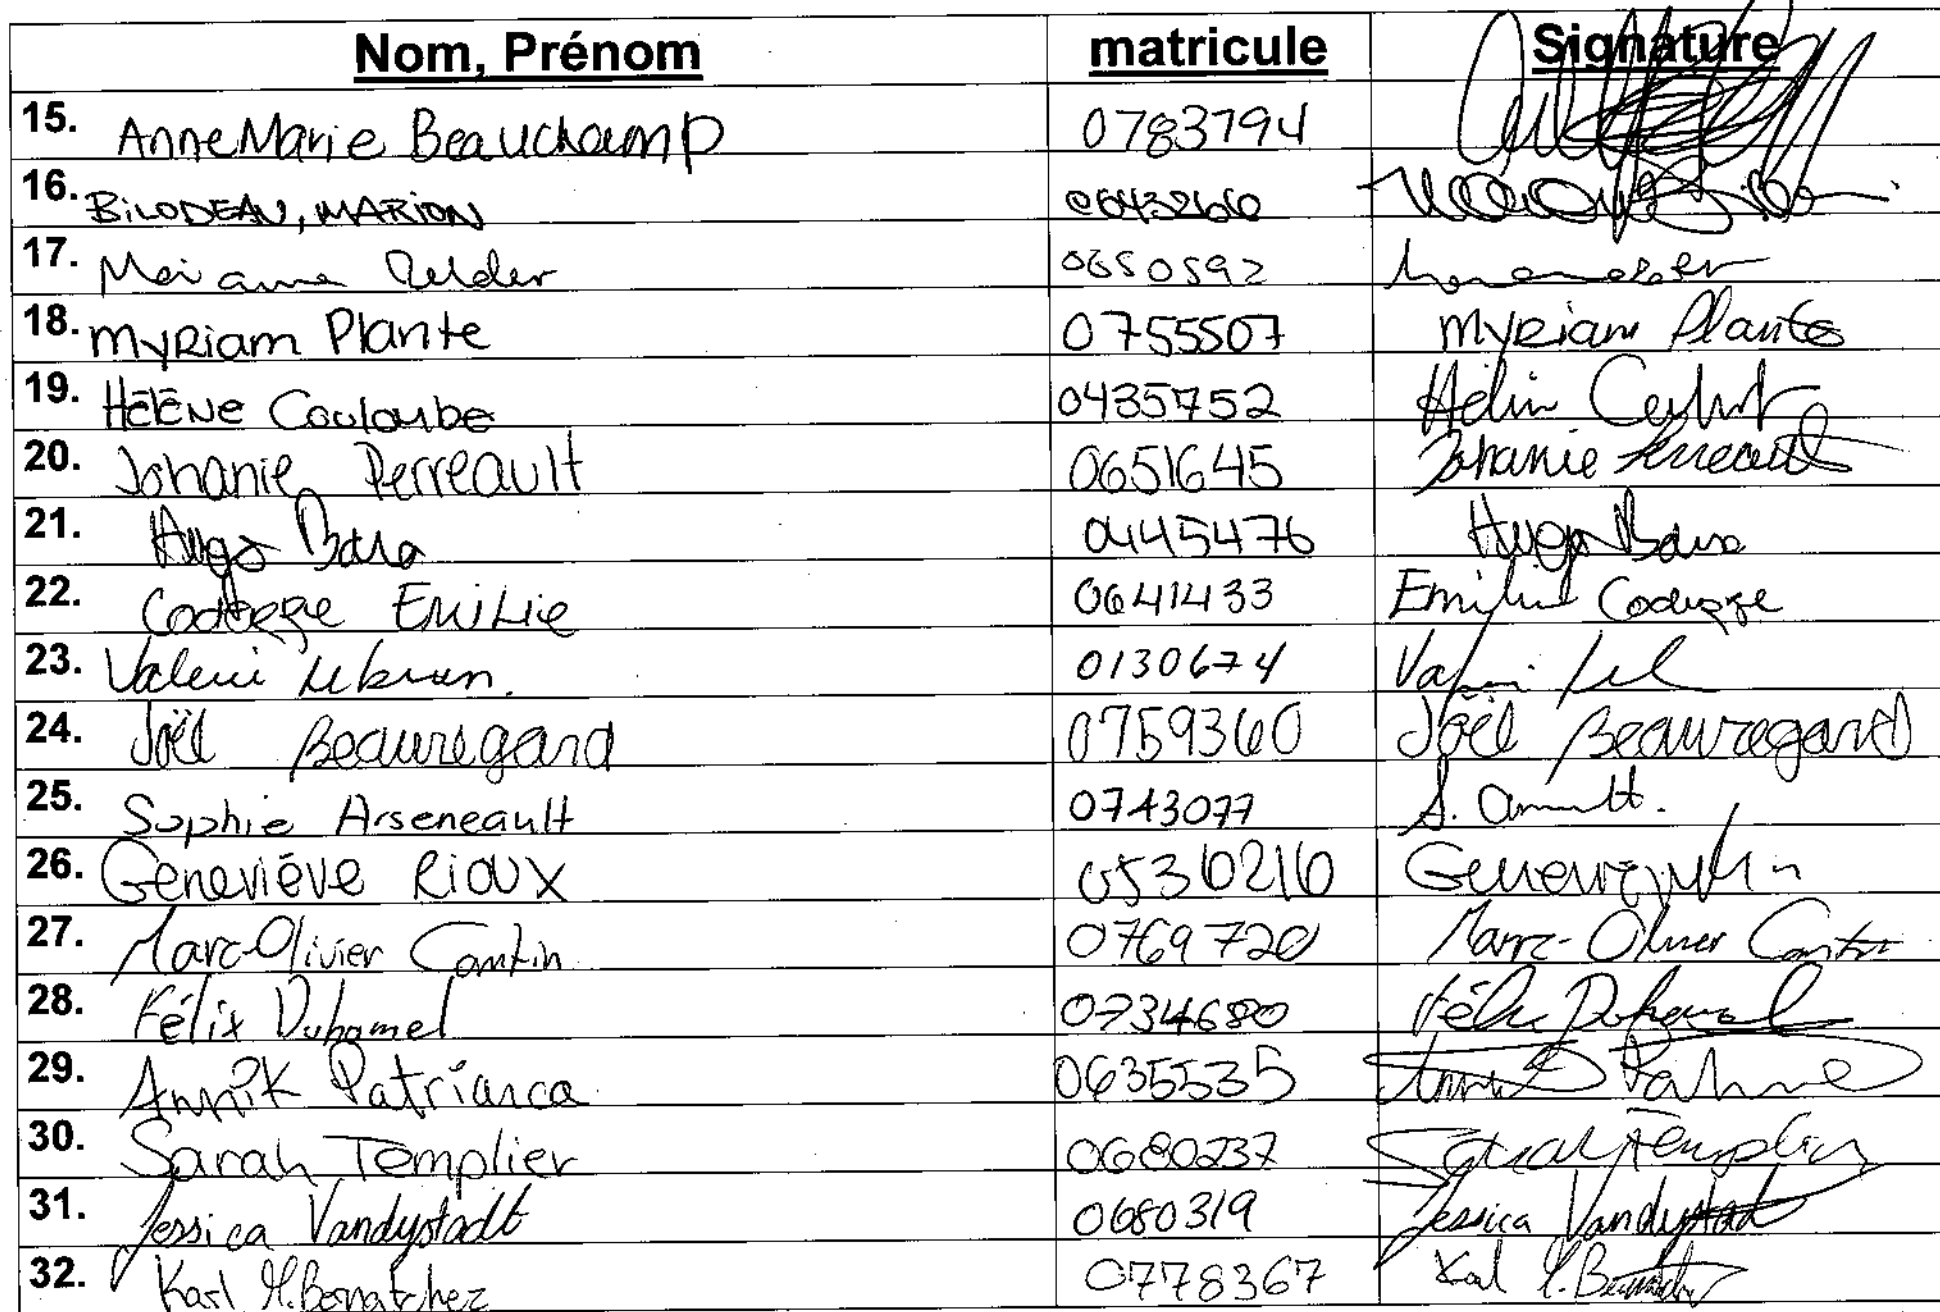 Nom, Prénom matricule Signature
15. AnneMarie Beauchamp 0783794
16. BILODEAU, MARION
17. 0650592
18. Myriam Plante 0755507 Myriam Plante
19. Hélène Couloumbe 0435752
20. Johanie Perreault 0651645 Johanie Perreault
21. Hugo 0445476 Hugo
22. Coderre Emilie 0641433 Emilie Coderre
23. Valerie Lebrun. 0130674
24. Joël Beauregard 0759360 Joël Beauregard
25. Sophie Arseneault 0743077 S.
26. Geneviève RIOUX 0536216
27. Marc-Olivier Cantin 0769720 Marc-Olivier Cantin
28. Félix Duhamel 0734680 Félix Duhamel
29. Annik Patriarca 0635535
30. Sarah Templier 0680237 Sarah Templier
31. Jessica Vandystadt 0680319 Jessica Vandystadt
32. Karl 0778367 Karl